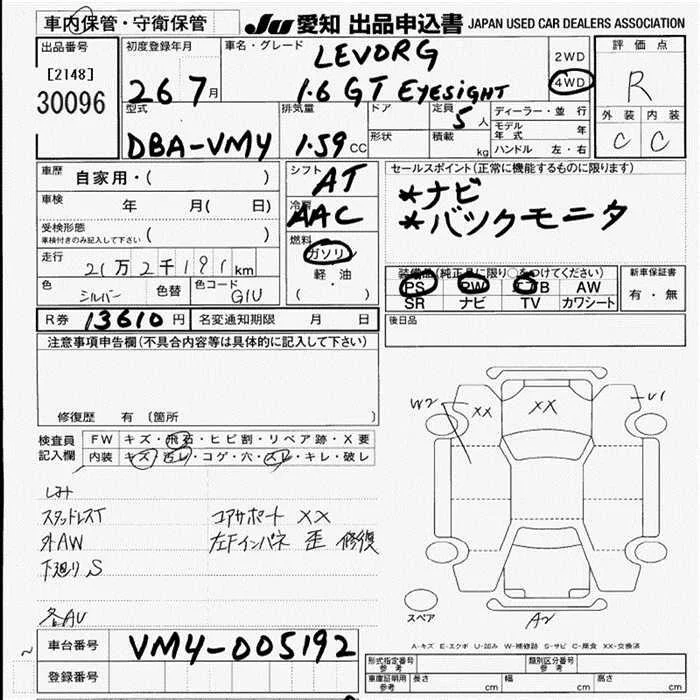 車内保管・守衛保管
JU 愛知 出品申込書 JAPAN USED CAR DEALERS ASSOCIATION
出品番号
[2148]
30096
初度登録年月
26 7月
車名・グレード
LEVORG
1.6 GT EyeSight
2WD
4WD
評価点
R
外装 内装
C C
型式
DBA-VM4
排気量
1.59 CC
ドア
形状
定員
5人
積載
kg
ディーラー・並行
モデル年式 年
ハンドル 左・右
車歴
自家用・( )
車検
年 月( 日)
受検形態
車検付きのみ記入して下さい ( )
走行
2万2千191km
色
シルバー 色替
色コード
G1U
シフト
AT
冷房
AAC
燃料
ガソリン
軽・油
( )
セールスポイント(正常に機能するものに限ります)
*ナビ
*バックモニタ
装備品(純正品に限り○をつけてください)
PS PW ナビ AW
SR ナビ TV カワシート
新車保証書
有・無
R券 13610円
名変通知期限 月 日
後日品
注意事項申告欄(不具合内容等は具体的に記入して下さい)
修復歴 有 〔箇所 〕
検査員記入欄
FW キズ・飛石・ヒビ割・リペア跡・X要
内装 キズ・汚レ・コゲ・穴・スレ・キレ・破レ
しみ
スタッドレスT コアサポート XX
外AW 左Fインパネ 歪 修復
下廻りS
各AU
W2
XX
XX
U1
スペア
A2
A-キズ E-エクボ U-凹み W-補修跡 S-サビ C-腐食 XX-交換済
車台番号 VM4-005192
登録番号
形式指定番号
参考
類別区分番号
参考
車庫証明用
参考
長さ cm
幅 cm
高さ cm